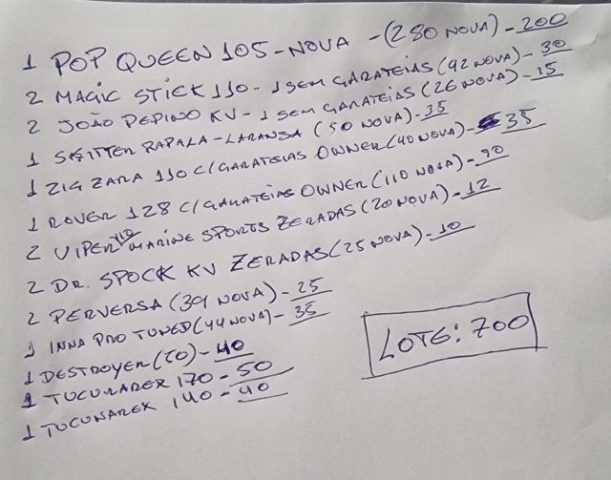 1 POP QUEEN 105 - NOVA - (280 NOVA) - 200
2 MAGIC STICK 110 - 1 SEM GARATEIAS (42 NOVA) - 30
2 JOÃO PEPINO KV - 1 SEM GARATEIAS (26 NOVA) - 15
1 SKITTER RAPALA - LARANJA (50 NOVA) - 35
1 ZIG ZARA 110 C/ GARATEIAS OWNER (40 NOVA) - 35
1 ROVER 128 C/ GARATEIAS OWNER (110 NOVA) - 90
2 VIPER MARINE SPORTS ZERADAS (20 NOVA) - 12
2 DR. SPOCK KV ZERADAS (25 NOVA) - 10
2 PERVERSA (39 NOVA) - 25
1 INNA PRO TUNED (44 NOVA) - 35
1 DESTROYER (70) - 40
1 TUCUNAREX 170 - 50
1 TUCUNAREX 140 - 40
LOTE: 700